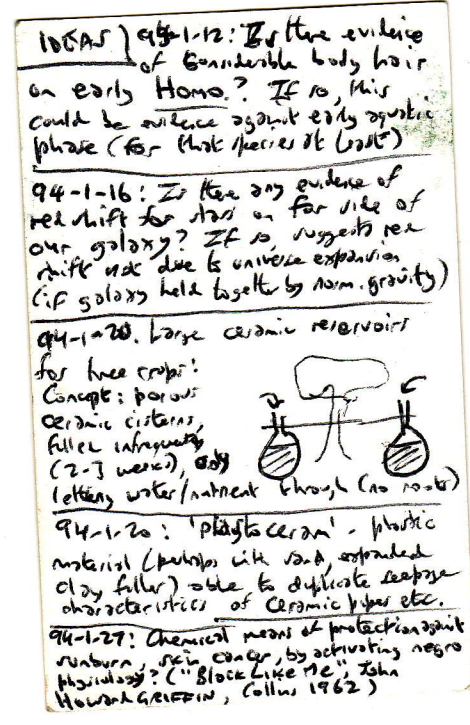 IDEAS) 94-1-12: Is there evidence
of considerable body hair
on early Homo? If so, this
could be evidence against early aquatic
phase (for that species at least)
94-1-16: Is there any evidence of
red shift for stars on far side of
our galaxy? If so, suggests red
shift not due to universe expansion
(if galaxy held together by norm. gravity)
94-1-20. Large ceramic reservoirs
for tree crops:
Concept: porous
ceramic cisterns,
filled infrequently
(2-3 weeks), only
letting water/nutrient through (no roots)
94-1-20: 'Plastoceram' - plastic
material (perhaps with sand, expanded
clay filler) able to duplicate seepage
characteristics of ceramic pipes etc.
94-1-27: Chemical means of protection against
sunburn, skin cancer, by activating negro
physiology? ("Black Like Me", John
Howard GRIFFIN, Collins 1962)